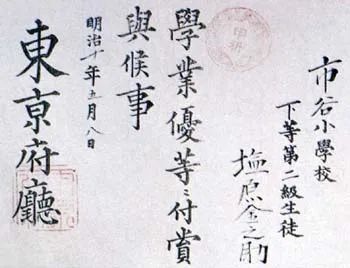 市谷小學校
下等第二級生徒
塩原金之助
學業優等ニ付賞
與候事
明治十年五月八日
東京府廳